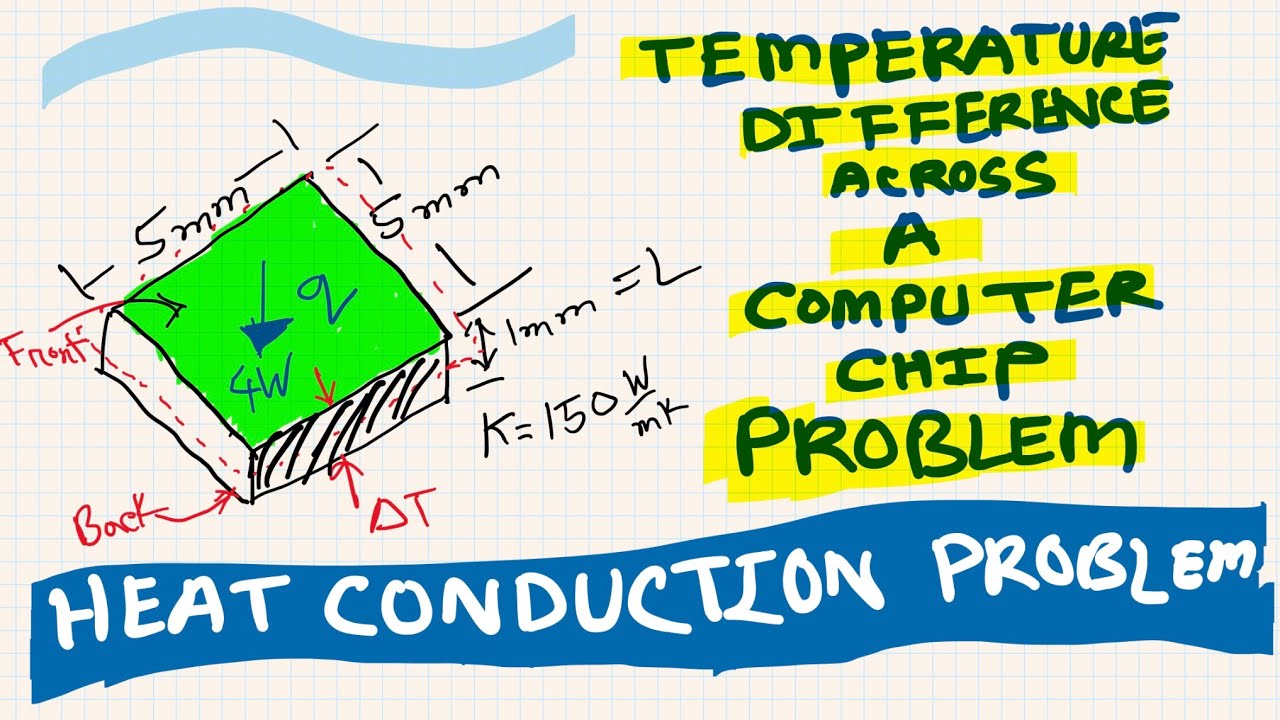 TEMPERATURE
DIFFERENCE
ACROSS
A
COMPUTER
CHIP
PROBLEM
5mm
5mm
q
4W
1mm = L
K=150 W/mK
Front
Back
ΔT
HEAT CONDUCTION PROBLEM.